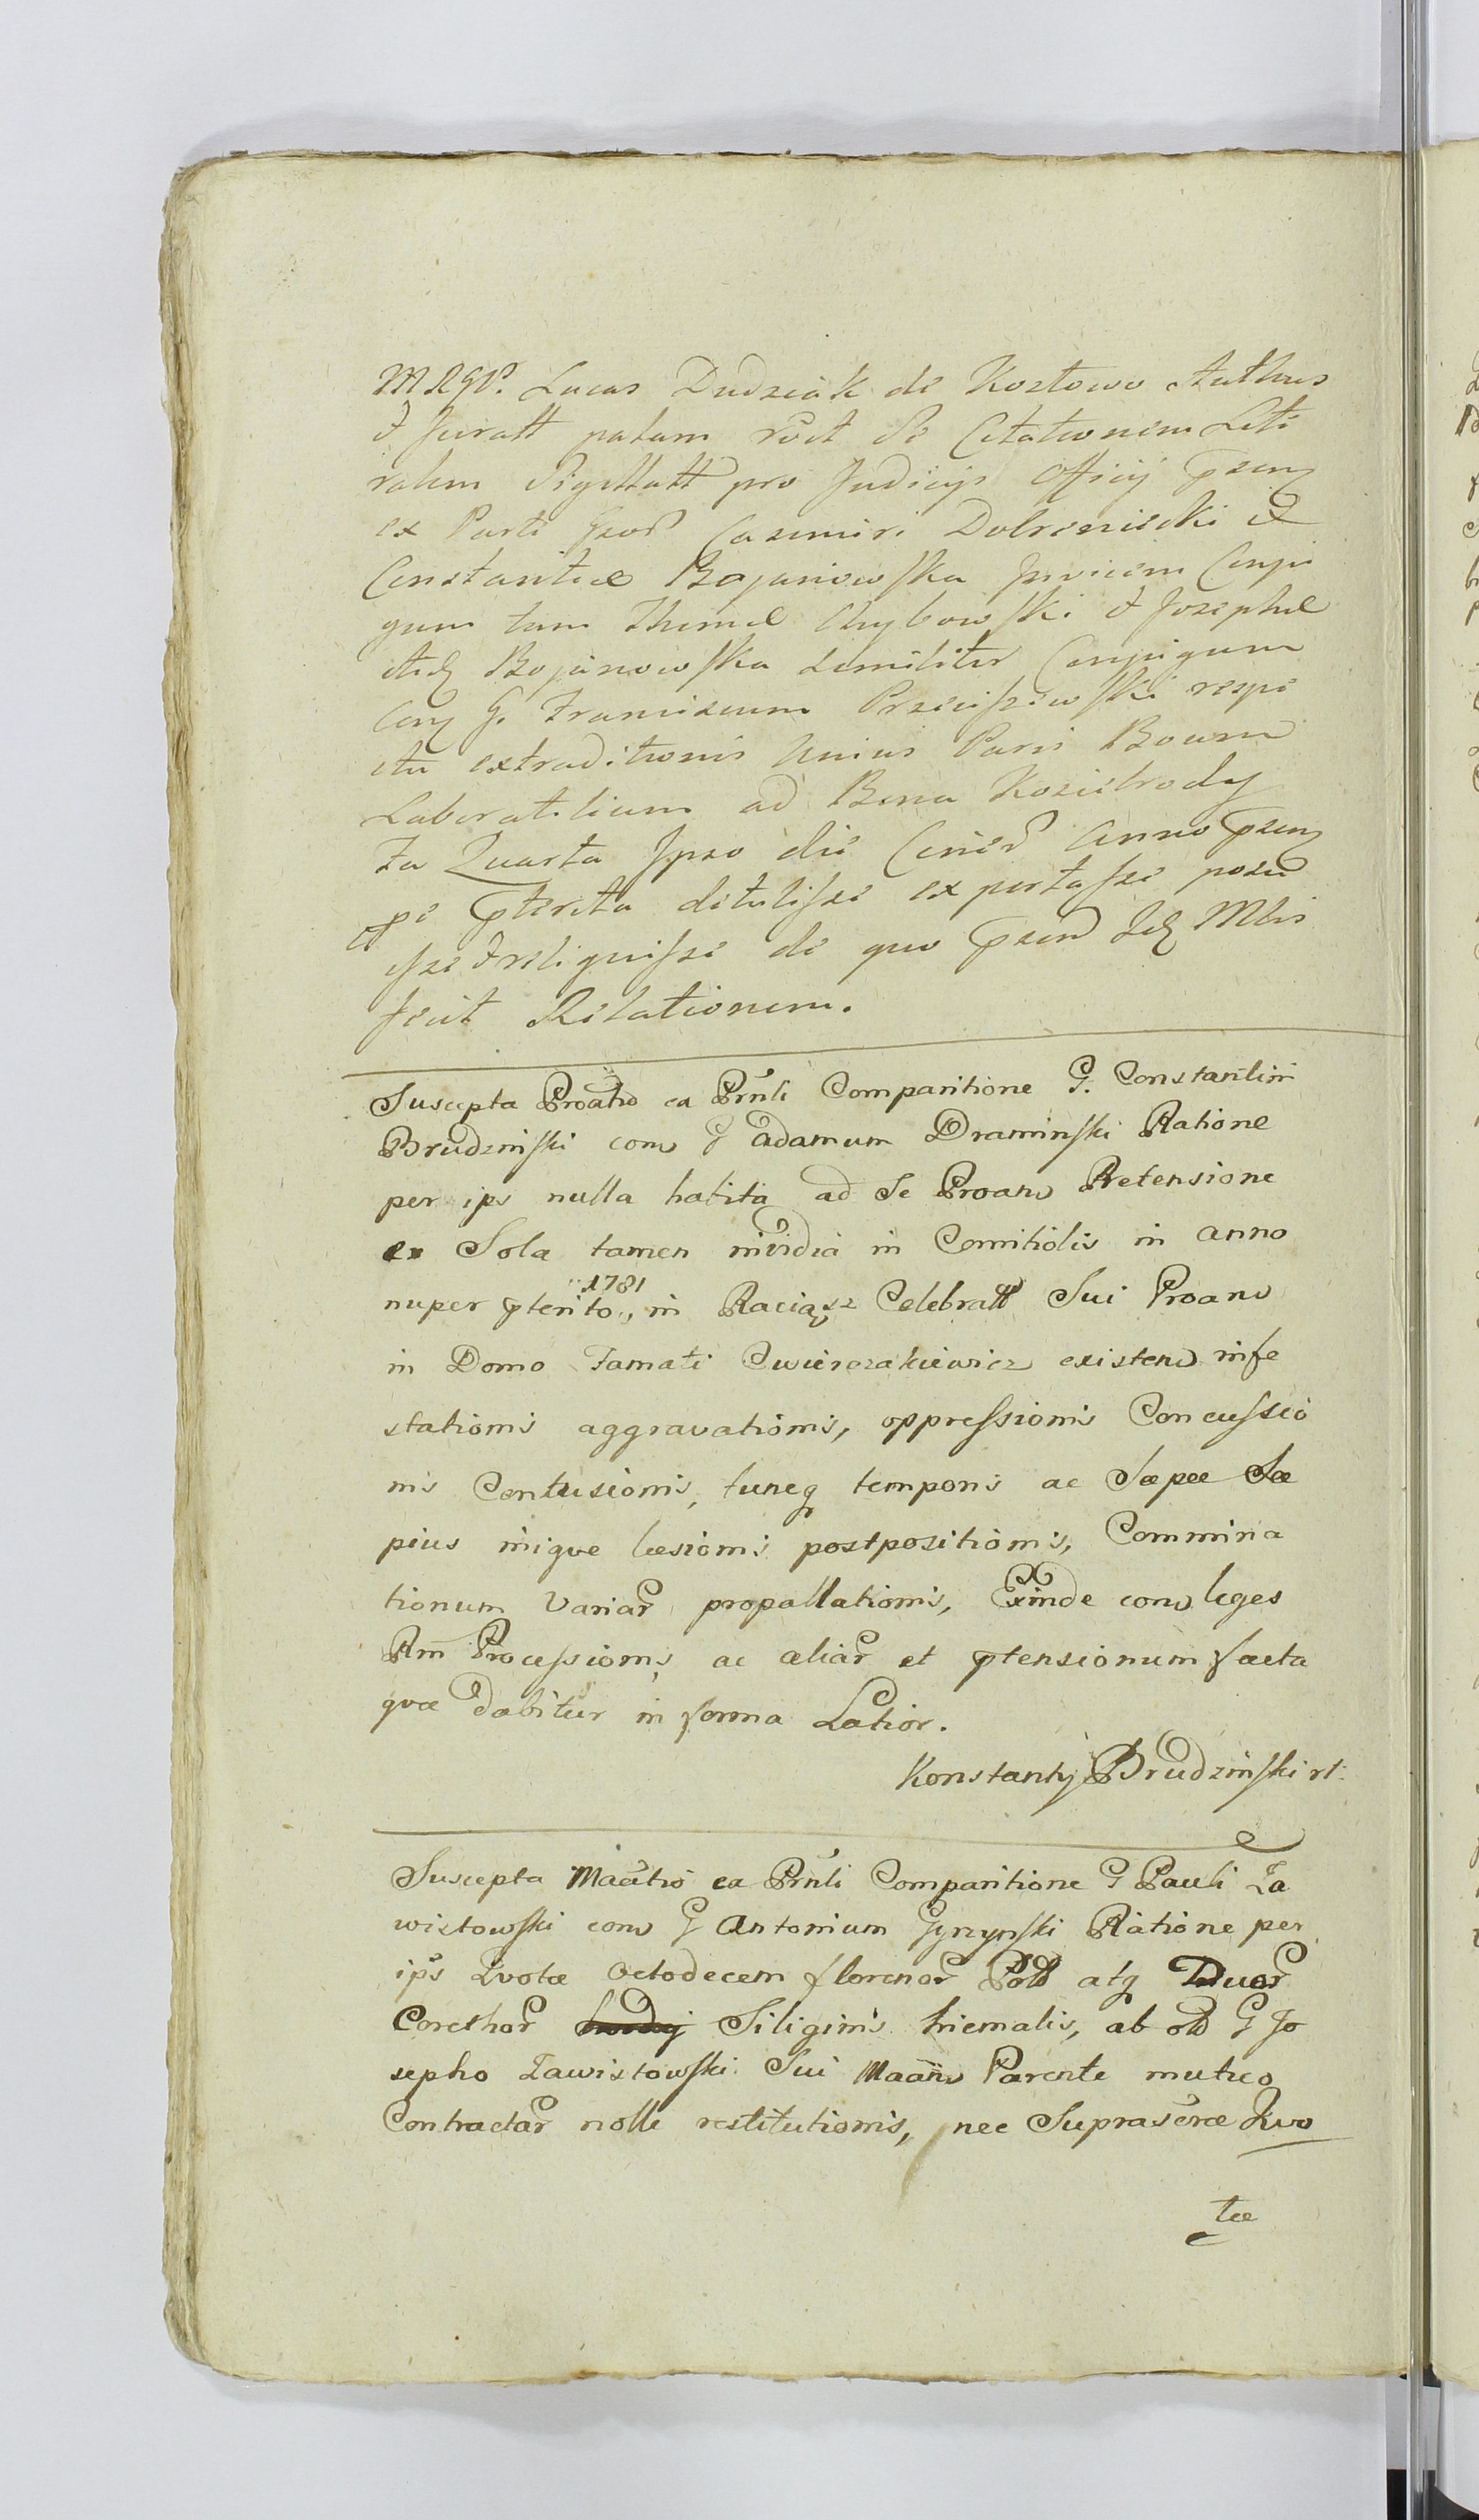 MRGP. Lucas Dudziak de Kozłowo Authus
& Juratt palam rěcit Se Citationem Lite
ralem Sigillatt pro Judicijs Officij pzen
ex Parte Gzor Casimiri Dobrzeniecki et
Constantiæ Bojanowska Jnvicem Conju
gum tum Thomæ Chybowski & Josephæ
itid Bojanowska Similiter Conjugum
con G. Franciscum Przeciszewski respe
ctu extraditionis Unius Paris Boum
Laboratilium ad Bona Koziebrody
Fa Quarta Jpso die Ciner Anno pzen
pe pterita detulisse exportasse posu
isse & reliquisse de quo pzen Id Mlis
fecit Relationem.
Suscepta Proatio ea Prnli Comparitione G. Constantini
Brudzinski con G adamum Draminski Ratione
per ips nulla habita ad Se Proan Pretensione
ex Sola tamen invidia in Comitiolis in anno
nuper pterito, 1781 in Raciąz Celebratt Sui Proan
in Domo Famati Swierczakiewicz existen infe
stationis aggravationis, oppressionis Concussio
nis Contusionis, tuncq temporis ac Sæpæ Sæ
pius inique læsionis postpositionis, Commina
tionum Variar propallationis, Exinde con leges
Rm Processionis ac aliar et ptensionum facta
quæ dabitur in forma Latior.
Konstanty Brudzinski rt:
Suscepta Maatio ea Prnli Comparitione G Pauli Za
wistowski con G Antonium Gyzynski Ratione per
ips Qvotæ Octodecem florenor Poll atq Duor
Corethor Siliginis hiemalis, ab oll G Jo
sepho Zawistowski Sui Maan Parente mutuo
Contractar nolle restitutionis, nec Suprascræ Qvo
tæ